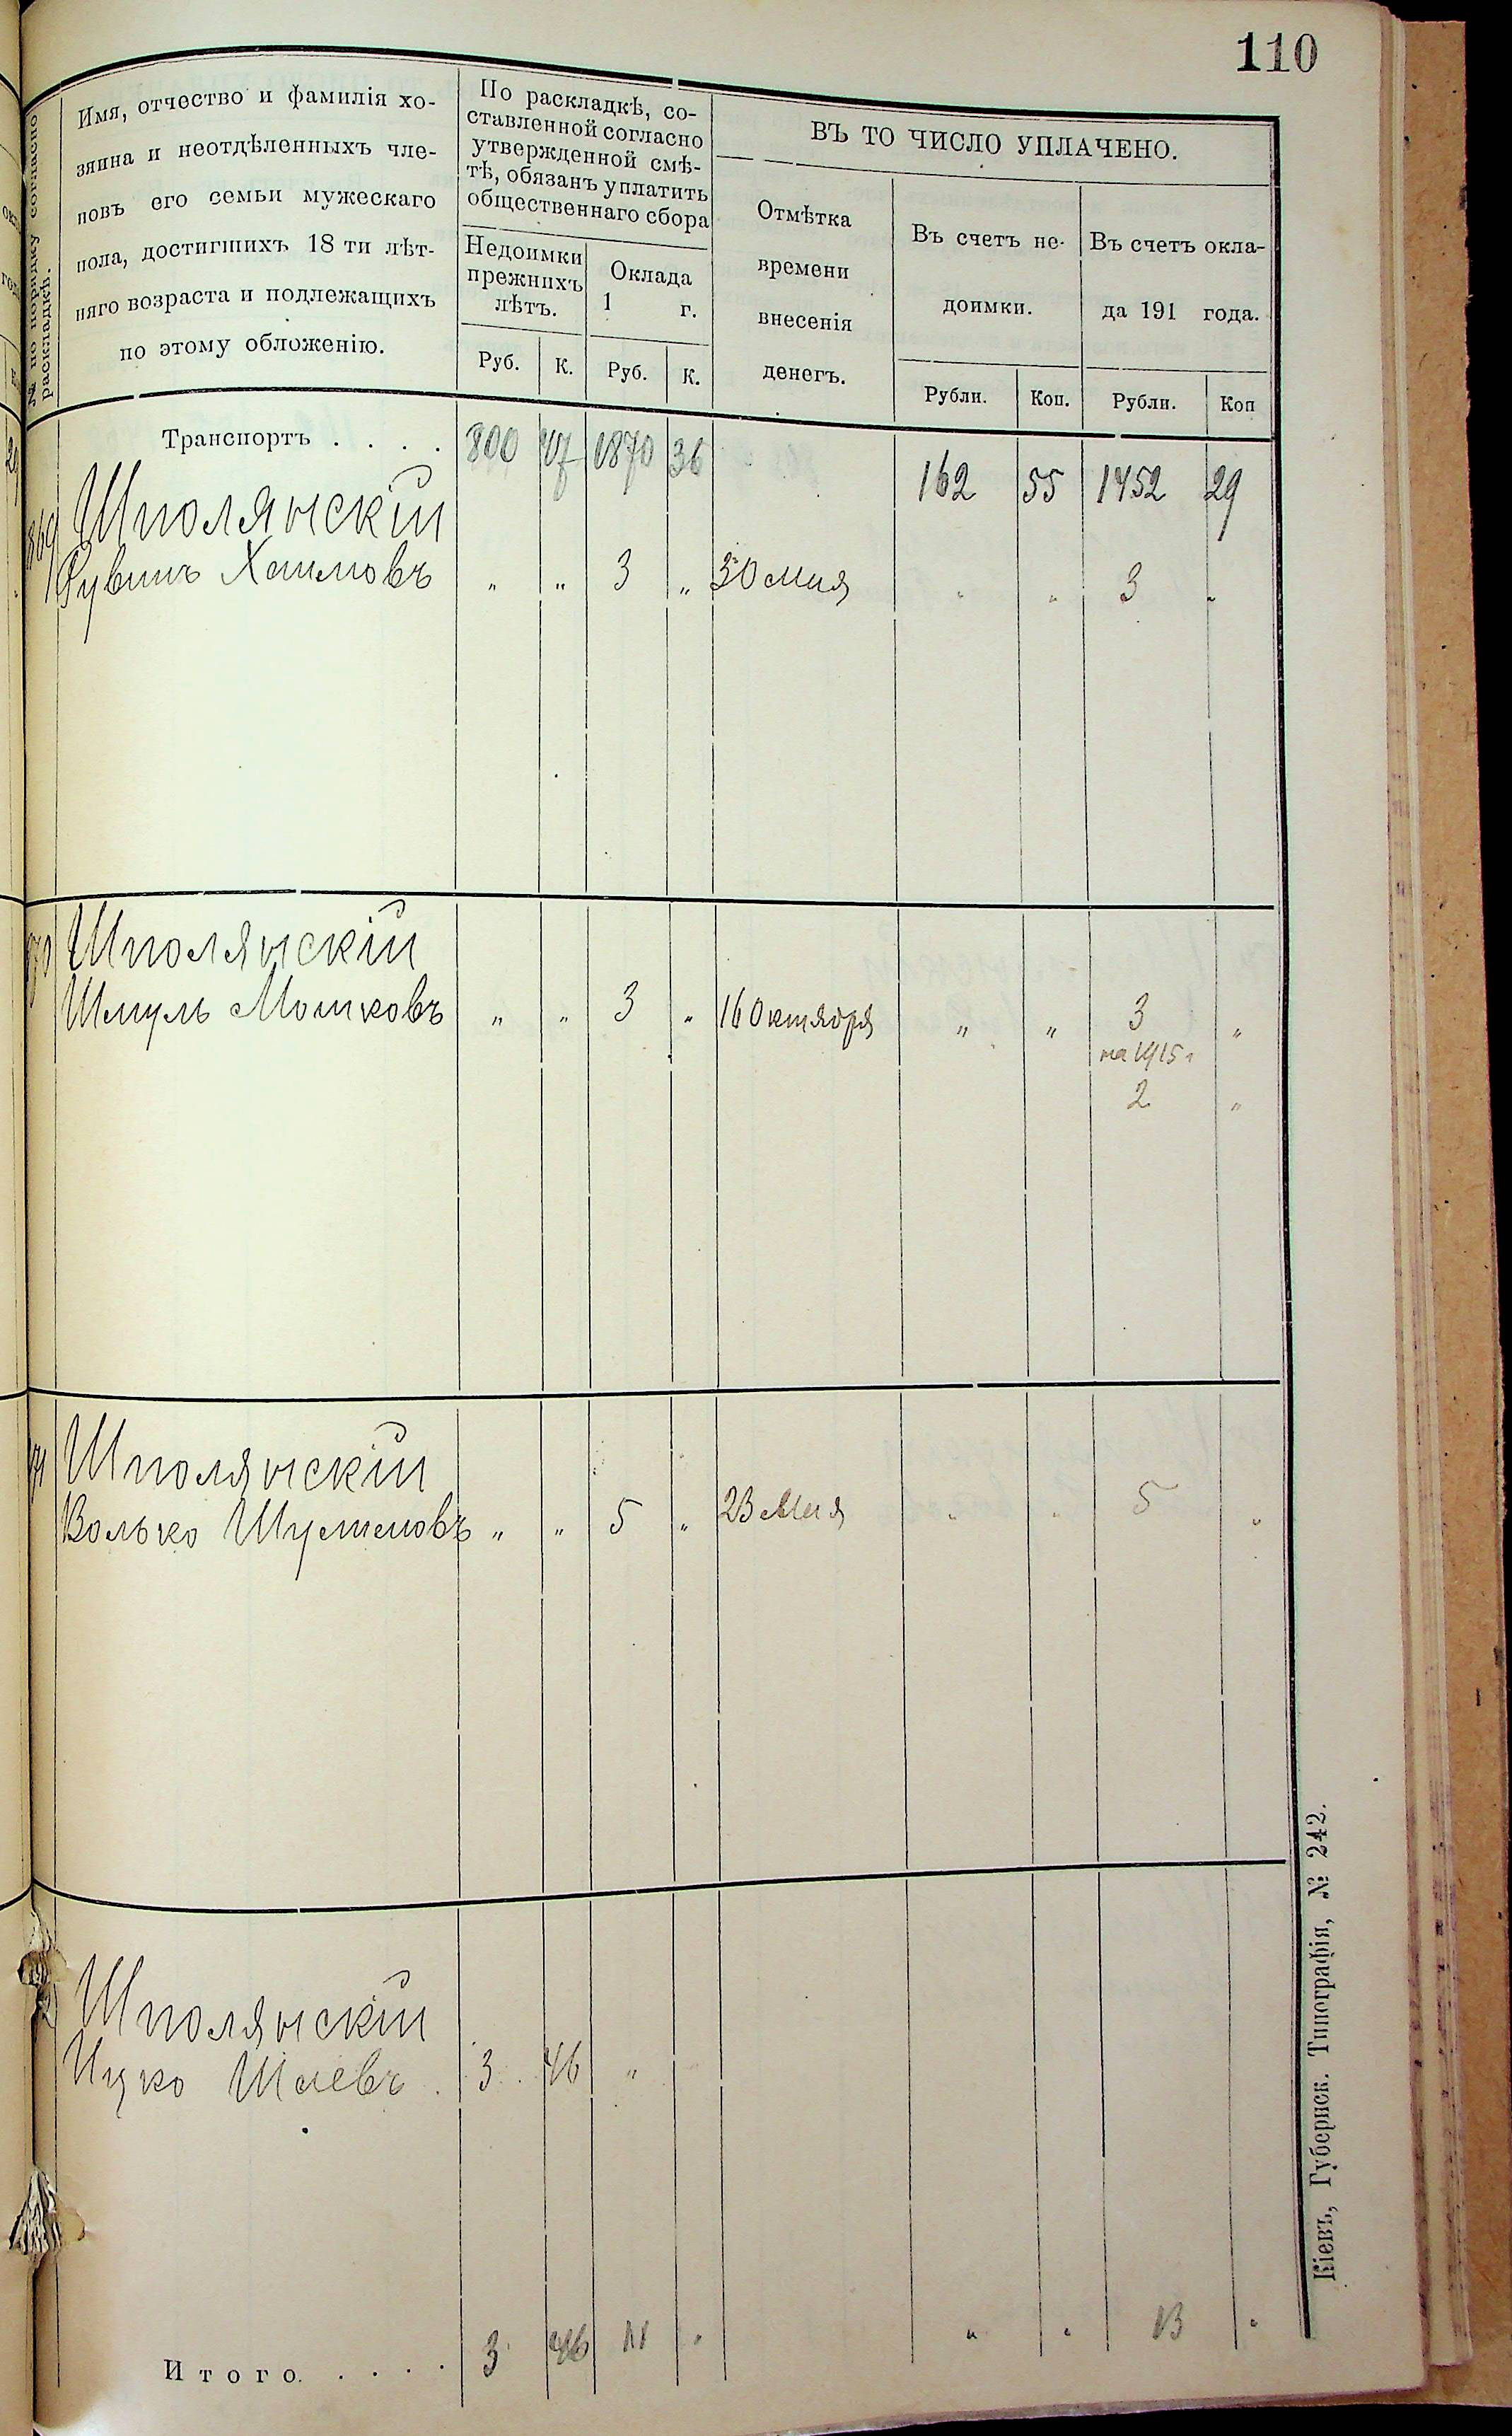 110
№ по порядку согласно
раскладкѣ.
Имя, отчество и фамилія хо-
зяина и неотдѣленныхъ чле-
новъ его семьи мужескаго
пола, достигшихъ 18 ти лѣт-
няго возраста и подлежащихъ
по этому обложенію.
По раскладкѣ, со-
ставленной согласно
утвержденной смѣ-
тѣ, обязанъ уплатить
общественнаго сбора
Недоимки
прежнихъ
лѣтъ.
Оклада
1 г.
Руб. К. Руб. К.
ВЪ ТО ЧИСЛО УПЛАЧЕНО.
Отмѣтка
времени
внесенія
денегъ.
Въ счетъ не-
доимки.
Въ счетъ окла-
да 191 года.
Рубли. Коп. Рубли. Коп
Транспортъ . . . . 800 47 1870 36 162 55 1452 29
869 Шполянскій
Рувинъ Хаимовъ " " 3 " 30 Мая " " 3 "
870 Шполянскій
Шмуль Мошковъ " " 3 " 16 Октября " " 3 "
на 1915 г
2 "
71 Шполянскій
Волько Шулимовъ " " 5 " 23 Мая " " 5 "
Шполянскій
Ицко Шаевъ 3 46 "
Итого. . . . . 3 46 11 " " " 13 "
Кіевъ, Губернск. Типографія, № 242.